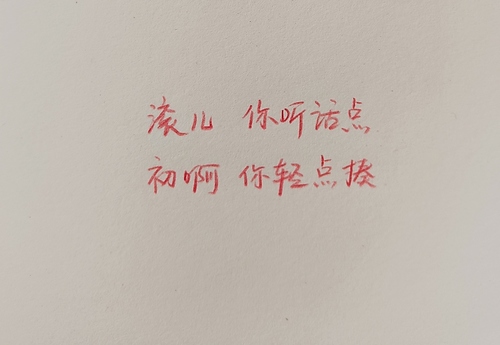 滚儿 你听话点
初啊 你轻点揍